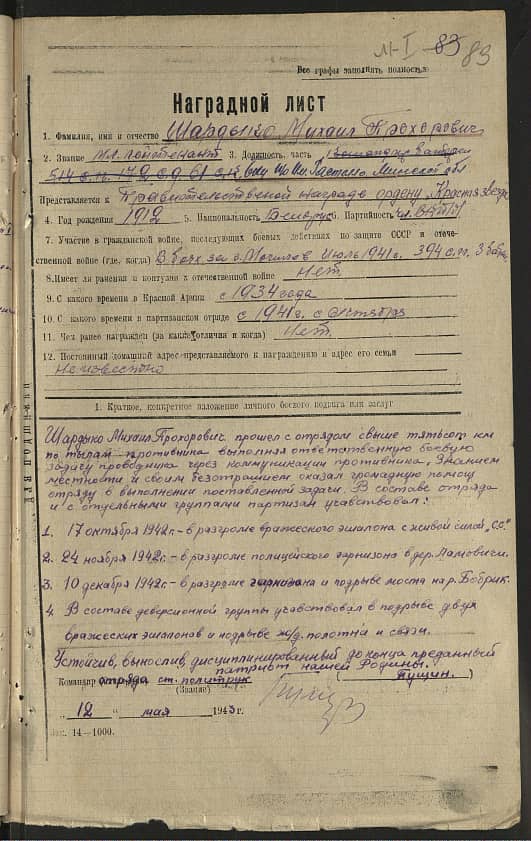 М-I 83 89
Все графы заполнить полностью
Наградной лист
1. Фамилия, имя и отчество Шардыко Михаил Прохорович
2. Звание мл. лейтенант 3. Должность, часть
Представляется к Правительственной награде ордену „Красная звезда
4. Год рождения 1912 5. Национальность Белорус 6. Партийность
7. Участие в гражданской войне, последующих боевых действиях по защите СССР и отече-
ственной войне (где, когда) В боях за г. Могилев Июль 1941 г. 394 с.п. 3
8. Имеет ли ранения и контузии в отечественной войне Нет
9. С какого времени в Красной Армии с 1934 года
10. С какого времени в партизанском отряде с 1941 г. с октября
11. Чем ранее награжден (за какие отличия и когда) Нет.
12. Постоянный домашний адрес представляемого к награждению и адрес его семьи
Неизвестно
1. Краткое, конкретное изложение личного боевого подвига или заслуг
Шардыко Михаил Прохорович, прошел с отрядом свыше пятьсот км
по тылам противника выполняя ответственную боевую
задачу проводника через коммуникации противника. Знанием
местности и своим безстрашием оказал громадную помощ
отряду в выполнении поставленной задачи. В составе отряда
и с отдельными группами партизан участвовал:
1. 17 октября 1942 г.- в разгроме вражеского эшалона с живой силой „С.С."
2. 24 ноября 1942 г.- в разгроме полицейского гарнизона в дер. Ламовичи.
3. 10 декабря 1942 г.- в разгроме гарнизона и подрыве моста на р. Бобрик.
4. В составе деверсионной группы участвовал в подрыве двух
вражеских эшалонов и подрыве ж/д. полотна и связи.
Устойчив, вынослив, дисциплинированный до конца преданный
патриот нашей Родины.
Командир отряда ст. политрук ( Пущин. )
(Звание)
„ 12 " мая 1943 г.
Зак. 14—1000.